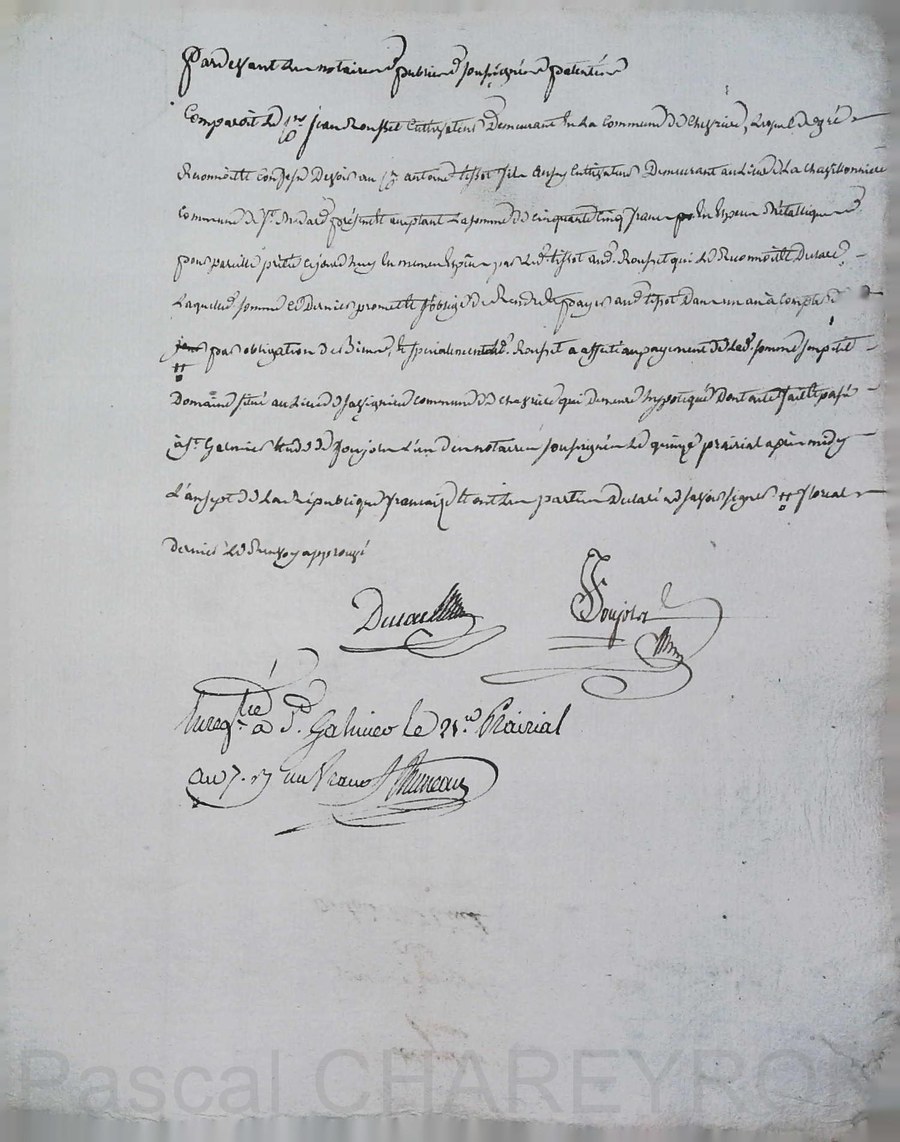 Pardevant les notaires publics soussignés patentés
Comparoit le Jean Rousset Cultivateur Demeurant en La Commune de Chevrière, Lequel de gré
Reconnoitt Confesse Devoir au antoine tissot fils Cultivateur Demeurant au Lieu de La
Commune de St. Medard présent acceptant La somme de cinquante cinq francs en espece Métallique
pour pareille prêtée ce jourd'huy en meme espèce par led. tissot aud. Rousset qui Le Reconnoitt
Laquelle somme ce Dernier promett s'oblige de Rendre et payer aud. tissot Dans un an à Compter du
par obligation de ses Biens, et specialement led. Rousset a affecté au payement de lad. somme son petit
Domaine situé au Lieu de commune de Chevrière qui Demeure hypotéqué Dont acte fait et passé
à St. Galmier etude de Foujols L'un des notaires soussignés Le quinze prairial après midy
L'an sept de La République française et ont les parties Declaré ne savoir signer floreal
dernier Le Renvoy approuvé
Foujols
Enregtré à St. Galmier le 21 Prairial
an 7. un franc
Pascal CHAREYRON